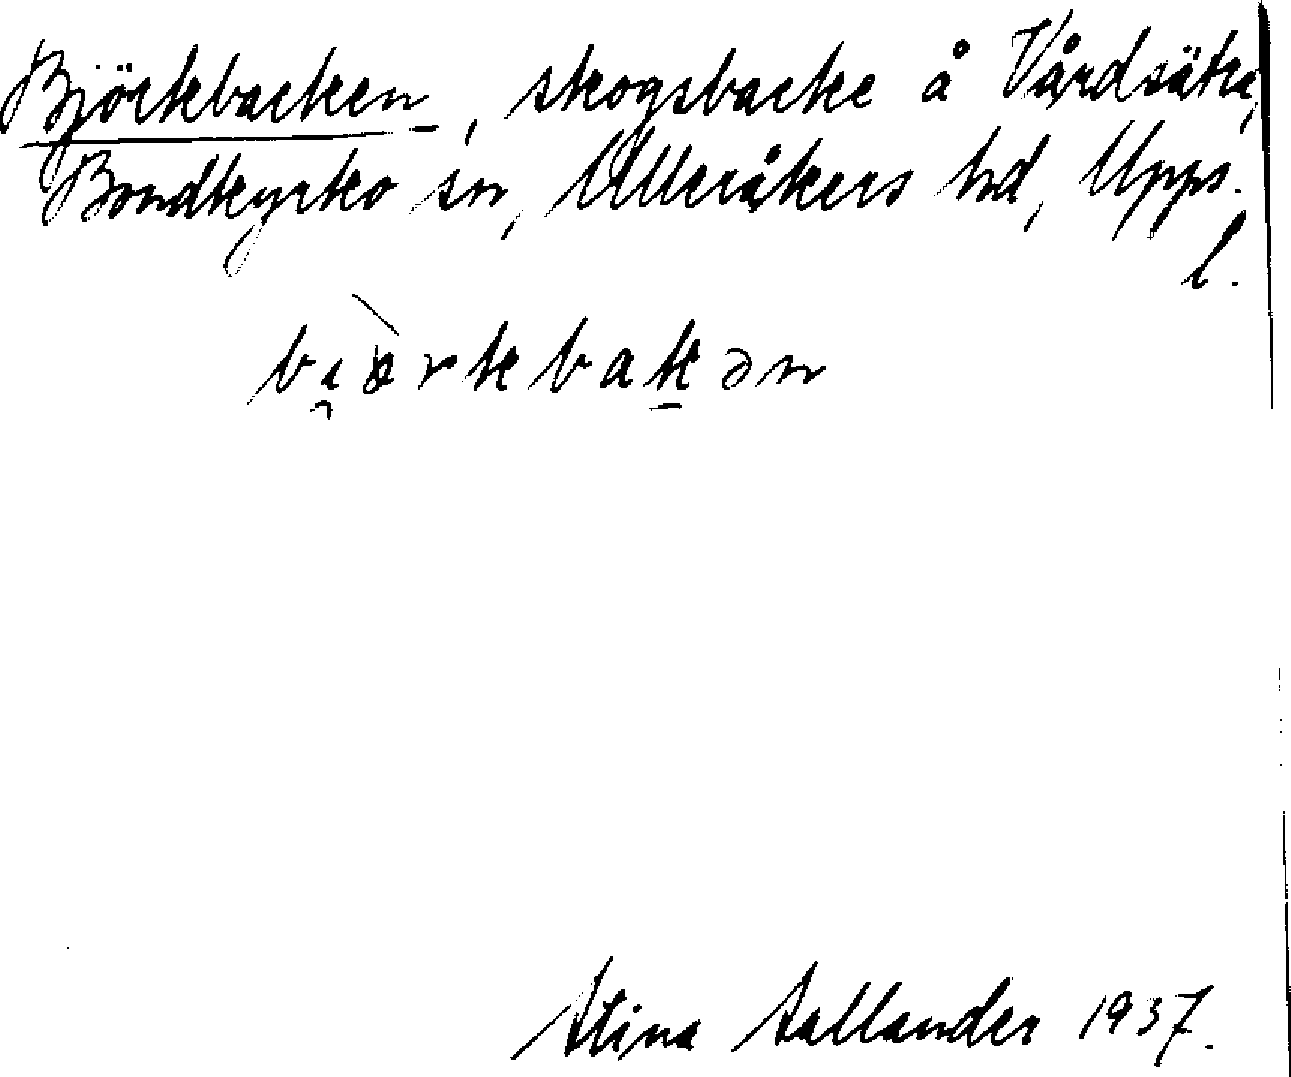 Björkbacken, skogsbacke å Vårdsätra,
Bondkyrko sn, Ulleråkers hd, Upps.
l.
Stina Sallander 1937.